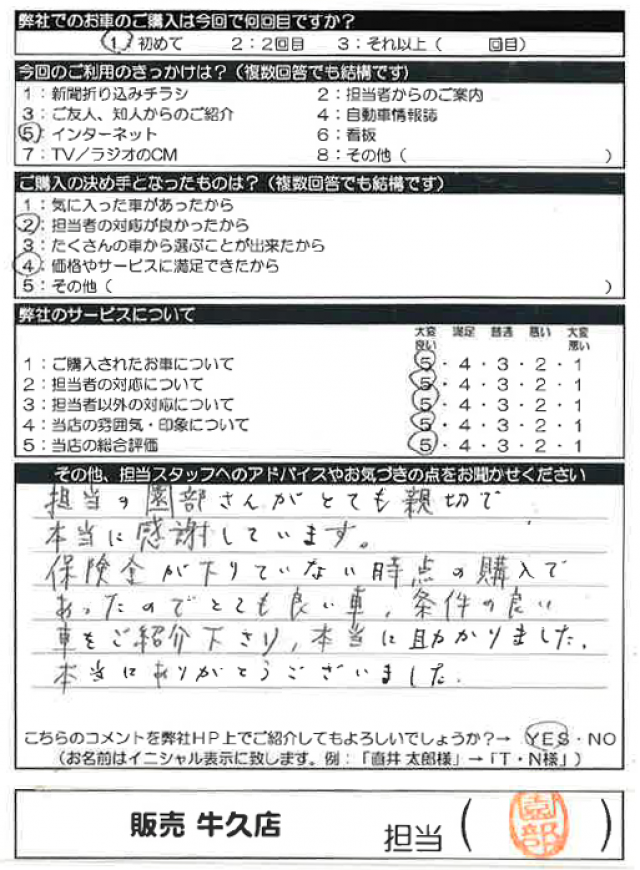 弊社でのお車のご購入は今回で何回目ですか?
1:初めて 2:2回目 3:それ以上( 回目)
今回のご利用のきっかけは?(複数回答でも結構です)
1:新聞折り込みチラシ 2:担当者からのご案内
3:ご友人、知人からのご紹介 4:自動車情報誌
5:インターネット 6:看板
7:TV/ラジオのCM 8:その他( )
ご購入の決め手となったものは?(複数回答でも結構です)
1:気に入った車があったから
2:担当者の対応が良かったから
3:たくさんの車から選ぶことが出来たから
4:価格やサービスに満足できたから
5:その他( )
弊社のサービスについて
大変良い 満足 普通 悪い 大変悪い
1:ご購入されたお車について 5・4・3・2・1
2:担当者の対応について 5・4・3・2・1
3:担当者以外の対応について 5・4・3・2・1
4:当店の雰囲気・印象について 5・4・3・2・1
5:当店の総合評価 5・4・3・2・1
その他、担当スタッフへのアドバイスやお気づきの点をお聞かせください
担当の園部さんがとても親切で
本当に感謝しています。
保険金が下りていない時点の購入で
あったのでとても良い車、条件の良い
車をご紹介下さり、本当に助かりました。
本当にありがとうございました。
こちらのコメントを弊社HP上でご紹介してもよろしいでしょうか?→ YES・NO
(お名前はイニシャル表示に致します。例:「直井 太郎様」→「T・N様」)
販売 牛久店 担当( 園部 )